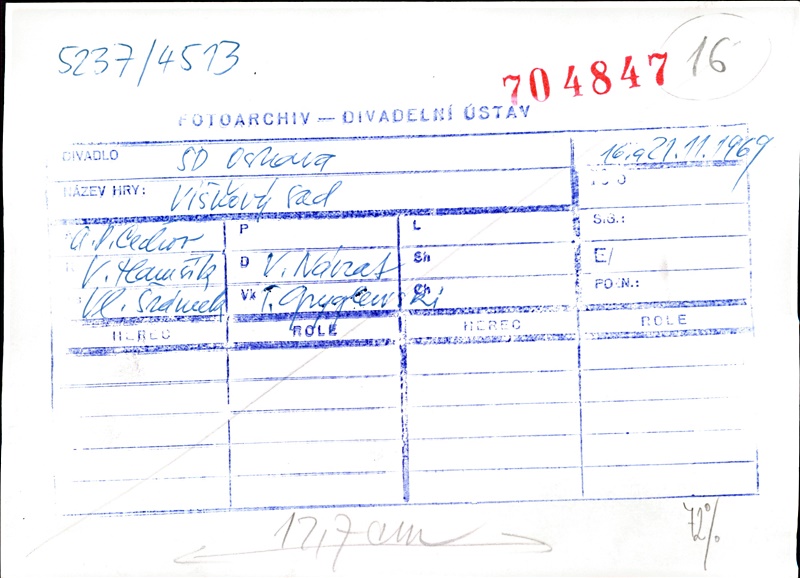 5237/4513
704847 16
FOTOARCHIV — DIVADELNÍ ÚSTAV
DIVADLO SD Ostrava 16. a 21. 11. 1969
NÁZEV HRY: Višňový sad
A. P. Čechov P L S/S.:
V. Hamšík D V. Návrat Sh E/
Vl. Šrámek Vk T. Gryglewski Ch POZN.:
HEREC ROLE HEREC ROLE
17,7 cm
72%